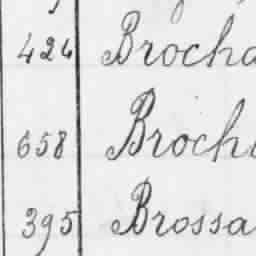 424 Brocha
658 Broch
395 Brossa